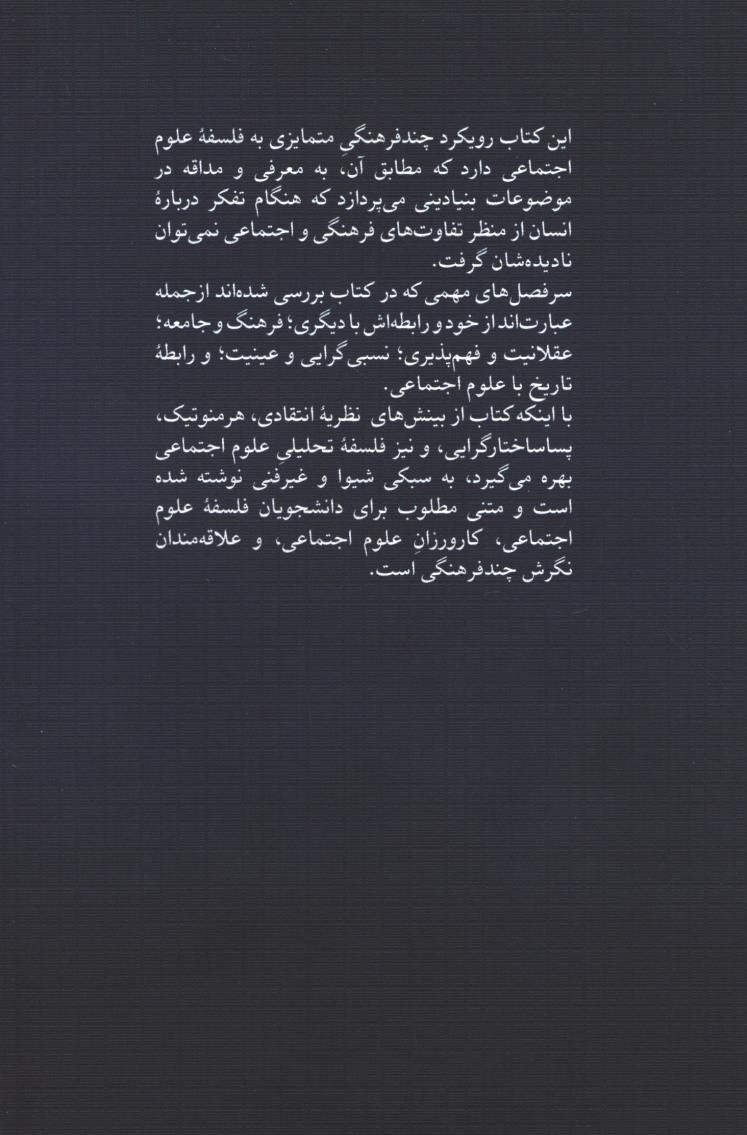 این کتاب رویکرد چندفرهنگیِ متمایزی به فلسفهٔ علوم
اجتماعی دارد که مطابق آن، به معرفی و مداقه در
موضوعات بنیادینی می‌پردازد که هنگام تفکر دربارهٔ
انسان از منظر تفاوت‌های فرهنگی و اجتماعی نمی‌توان
نادیده‌شان گرفت.
سرفصل‌های مهمی که در کتاب بررسی شده‌اند ازجمله
عبارت‌اند از خود و رابطه‌اش با دیگری؛ فرهنگ و جامعه؛
عقلانیت و فهم‌پذیری؛ نسبی‌گرایی و عینیت؛ و رابطهٔ
تاریخ با علوم اجتماعی.
با اینکه کتاب از بینش‌های نظریهٔ انتقادی، هرمنوتیک،
پساساختارگرایی، و نیز فلسفهٔ تحلیلیِ علوم اجتماعی
بهره می‌گیرد، به سبکی شیوا و غیرفنی نوشته شده
است و متنی مطلوب برای دانشجویان فلسفهٔ علوم
اجتماعی، کارورزانِ علوم اجتماعی، و علاقه‌مندان
نگرش چندفرهنگی است.